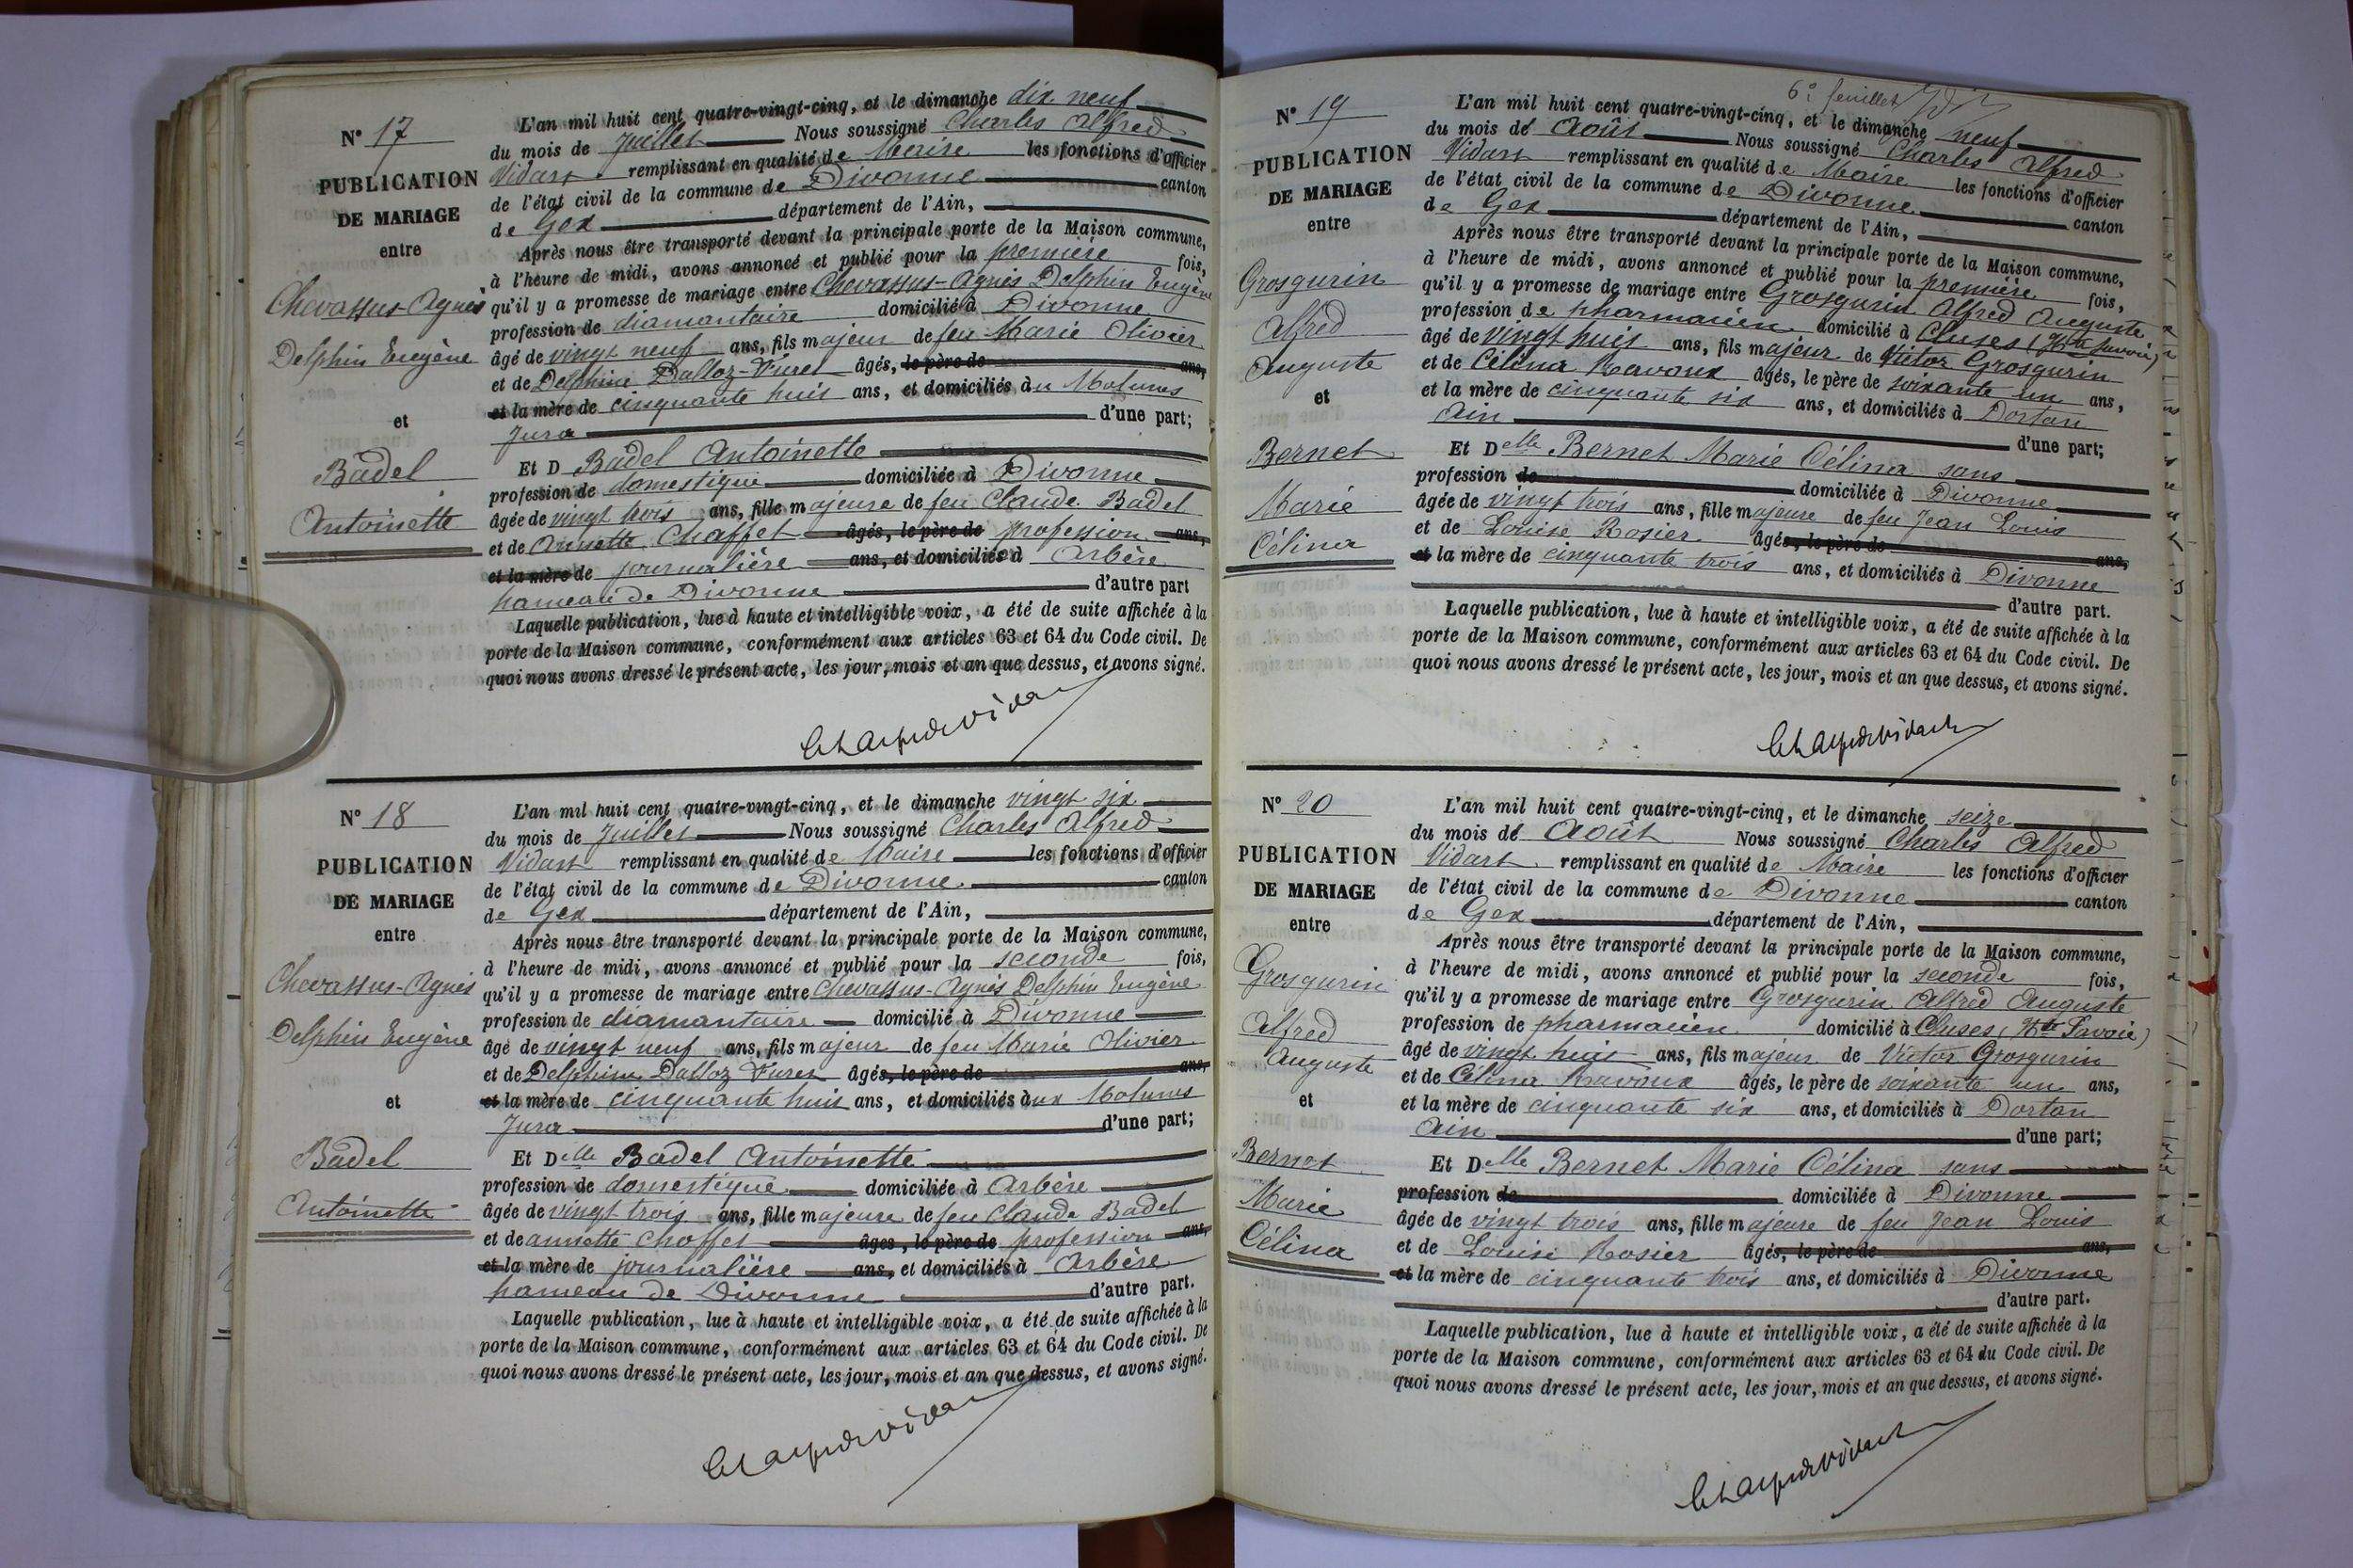 N° 17
PUBLICATION
DE MARIAGE
entre
Chevassus-Agnès
Delphin Eugène
et
Badel
Antoinette
L'an mil huit cent quatre-vingt-cinq, et le dimanche dix neuf
du mois de Juillet Nous soussigné Charles Alfred
Vidart remplissant en qualité de Maire les fonctions d'officier
de l'état civil de la commune de Divonne canton
de Gex département de l'Ain,
Après nous être transporté devant la principale porte de la Maison commune,
à l'heure de midi, avons annoncé et publié pour la première fois,
qu'il y a promesse de mariage entre Chevassus-Agnès Delphin Eugène
profession de diamantaire domicilié à Divonne
âgé de vingt neuf ans, fils majeur de feu Marie Olivier
et de Delphine Dalloz-Furet âgés, le père de ans,
et la mère de cinquante huit ans, et domiciliés aux Molunes
Jura d'une part;
Et D Badel Antoinette
profession de domestique domiciliée à Divonne
âgée de vingt trois ans, fille majeure de feu Claude Badel
et de Annette Chaffet âgés, le père de profession ans,
et la mère de journalière ans, et domiciliés à Arbère
hameau de Divonne d'autre part
Laquelle publication, lue à haute et intelligible voix, a été de suite affichée à la
porte de la Maison commune, conformément aux articles 63 et 64 du Code civil. De
quoi nous avons dressé le présent acte, les jour, mois et an que dessus, et avons signé.
N° 18
PUBLICATION
DE MARIAGE
entre
Chevassus-Agnès
Delphin Eugène
et
Badel
Antoinette
L'an mil huit cent quatre-vingt-cinq, et le dimanche vingt six
du mois de Juillet Nous soussigné Charles Alfred
Vidart remplissant en qualité de Maire les fonctions d'officier
de l'état civil de la commune de Divonne canton
de Gex département de l'Ain,
Après nous être transporté devant la principale porte de la Maison commune,
à l'heure de midi, avons annoncé et publié pour la seconde fois,
qu'il y a promesse de mariage entre Chevassus-Agnès Delphin Eugène
profession de diamantaire domicilié à Divonne
âgé de vingt neuf ans, fils majeur de feu Marie Olivier
et de Delphine Dalloz Furet âgés, le père de ans,
et la mère de cinquante huit ans, et domiciliés aux Molunes
Jura d'une part;
Et Delle Badel Antoinette
profession de domestique domiciliée à Arbère
âgée de vingt trois ans, fille majeure de feu Claude Badel
et de annette Choffet âgés, le père de profession ans,
et la mère de journalière ans, et domiciliés à Arbère
hameau de Divonne d'autre part.
Laquelle publication, lue à haute et intelligible voix, a été de suite affichée à la
porte de la Maison commune, conformément aux articles 63 et 64 du Code civil. De
quoi nous avons dressé le présent acte, les jour, mois et an que dessus, et avons signé.
6e feuillet
N° 19
PUBLICATION
DE MARIAGE
entre
Grosgurin
Alfred
Auguste
et
Bernet
Marie
Célina
L'an mil huit cent quatre-vingt-cinq, et le dimanche neuf
du mois de Août Nous soussigné Charles Alfred
Vidart remplissant en qualité de Maire les fonctions d'officier
de l'état civil de la commune de Divonne canton
de Gex département de l'Ain,
Après nous être transporté devant la principale porte de la Maison commune,
à l'heure de midi, avons annoncé et publié pour la première fois,
qu'il y a promesse de mariage entre Grosgurin Alfred Auguste
profession de pharmacien domicilié à Cluses (Hte Savoie)
âgé de vingt huit ans, fils majeur de Victor Grosgurin
et de Célina Ravoux âgés, le père de soixante un ans,
et la mère de cinquante six ans, et domiciliés à Dortan
Ain d'une part;
Et Delle Bernet Marie Célina sans
profession de domiciliée à Divonne
âgée de vingt trois ans, fille majeure de feu Jean Louis
et de Louise Rosier âgés, le père de ans,
et la mère de cinquante trois ans, et domiciliés à Divonne
d'autre part.
Laquelle publication, lue à haute et intelligible voix, a été de suite affichée à la
porte de la Maison commune, conformément aux articles 63 et 64 du Code civil. De
quoi nous avons dressé le présent acte, les jour, mois et an que dessus, et avons signé.
N° 20
PUBLICATION
DE MARIAGE
entre
Grosgurin
Alfred
Auguste
et
Bernet
Marie
Célina
L'an mil huit cent quatre-vingt-cinq, et le dimanche seize
du mois de Août Nous soussigné Charles Alfred
Vidart remplissant en qualité de Maire les fonctions d'officier
de l'état civil de la commune de Divonne canton
de Gex département de l'Ain,
Après nous être transporté devant la principale porte de la Maison commune,
à l'heure de midi, avons annoncé et publié pour la seconde fois,
qu'il y a promesse de mariage entre Grosgurin Alfred Auguste
profession de pharmacien domicilié à Cluses (Hte Savoie)
âgé de vingt huit ans, fils majeur de Victor Grosgurin
et de Célina Ravoux âgés, le père de soixante un ans,
et la mère de cinquante six ans, et domiciliés à Dortan
Ain d'une part;
Et Delle Bernet Marie Célina sans
profession de domiciliée à Divonne
âgée de vingt trois ans, fille majeure de feu Jean Louis
et de Louise Rosier âgés, le père de ans,
et la mère de cinquante trois ans, et domiciliés à Divonne
d'autre part.
Laquelle publication, lue à haute et intelligible voix, a été de suite affichée à la
porte de la Maison commune, conformément aux articles 63 et 64 du Code civil. De
quoi nous avons dressé le présent acte, les jour, mois et an que dessus, et avons signé.